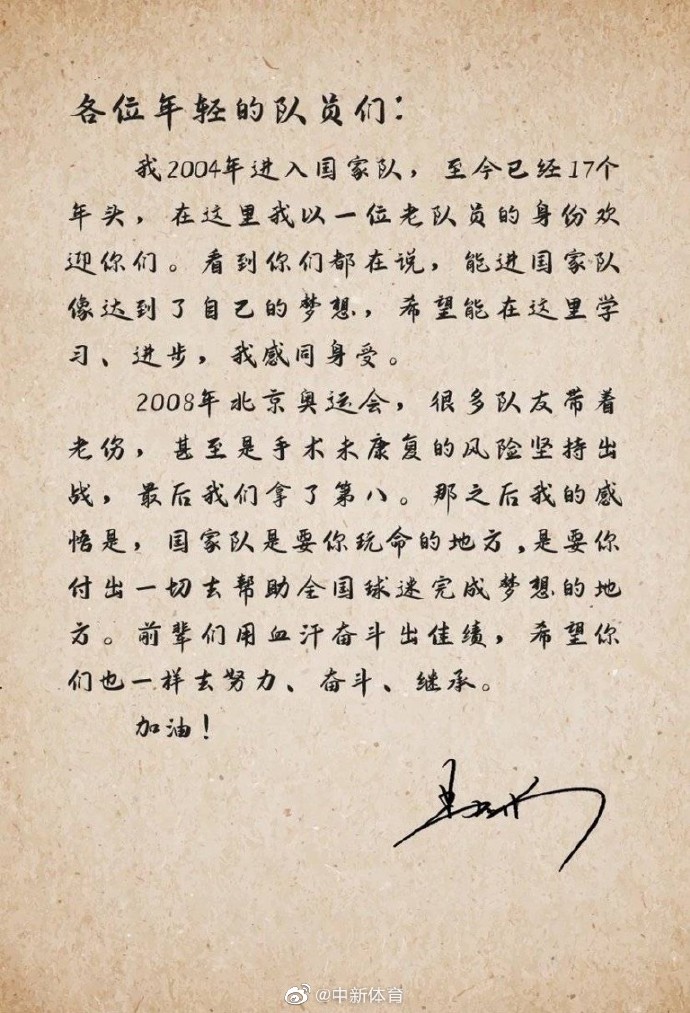 各位年轻的队员们：
我2004年进入国家队，至今已经17个
年头，在这里我以一位老队员的身份欢
迎你们。看到你们都在说，能进国家队
像达到了自己的梦想，希望能在这里学
习、进步，我感同身受。
2008年北京奥运会，很多队友带着
老伤，甚至是手术未康复的风险坚持出
战，最后我们拿了第八。那之后我的感
悟是，国家队是要你玩命的地方，是要你
付出一切去帮助全国球迷完成梦想的地
方。前辈们用血汗奋斗出佳绩，希望你
们也一样去努力、奋斗、继承。
加油！
@中新体育